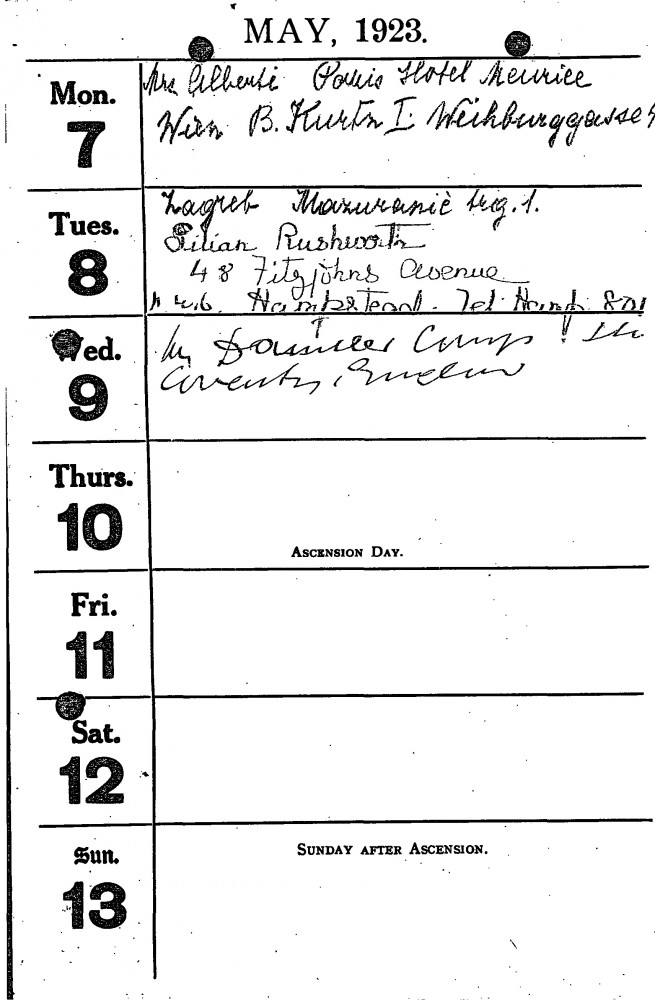 MAY, 1923.
Mon.
7
Mrs Alberti Paris Hotel Meurice
Wien B. Kurtn I. Weihburggasse 4
Tues.
8
Zagreb Mazuranić trg. 1.
Lilian Rushworth
48 Fitzjohns Avenue
N.W.6. Hampstead. Tel Hamp 801
Wed.
9
Daimler Comp
Coventry, England
Thurs.
10
ASCENSION DAY.
Fri.
11
Sat.
12
Sun.
13
SUNDAY AFTER ASCENSION.